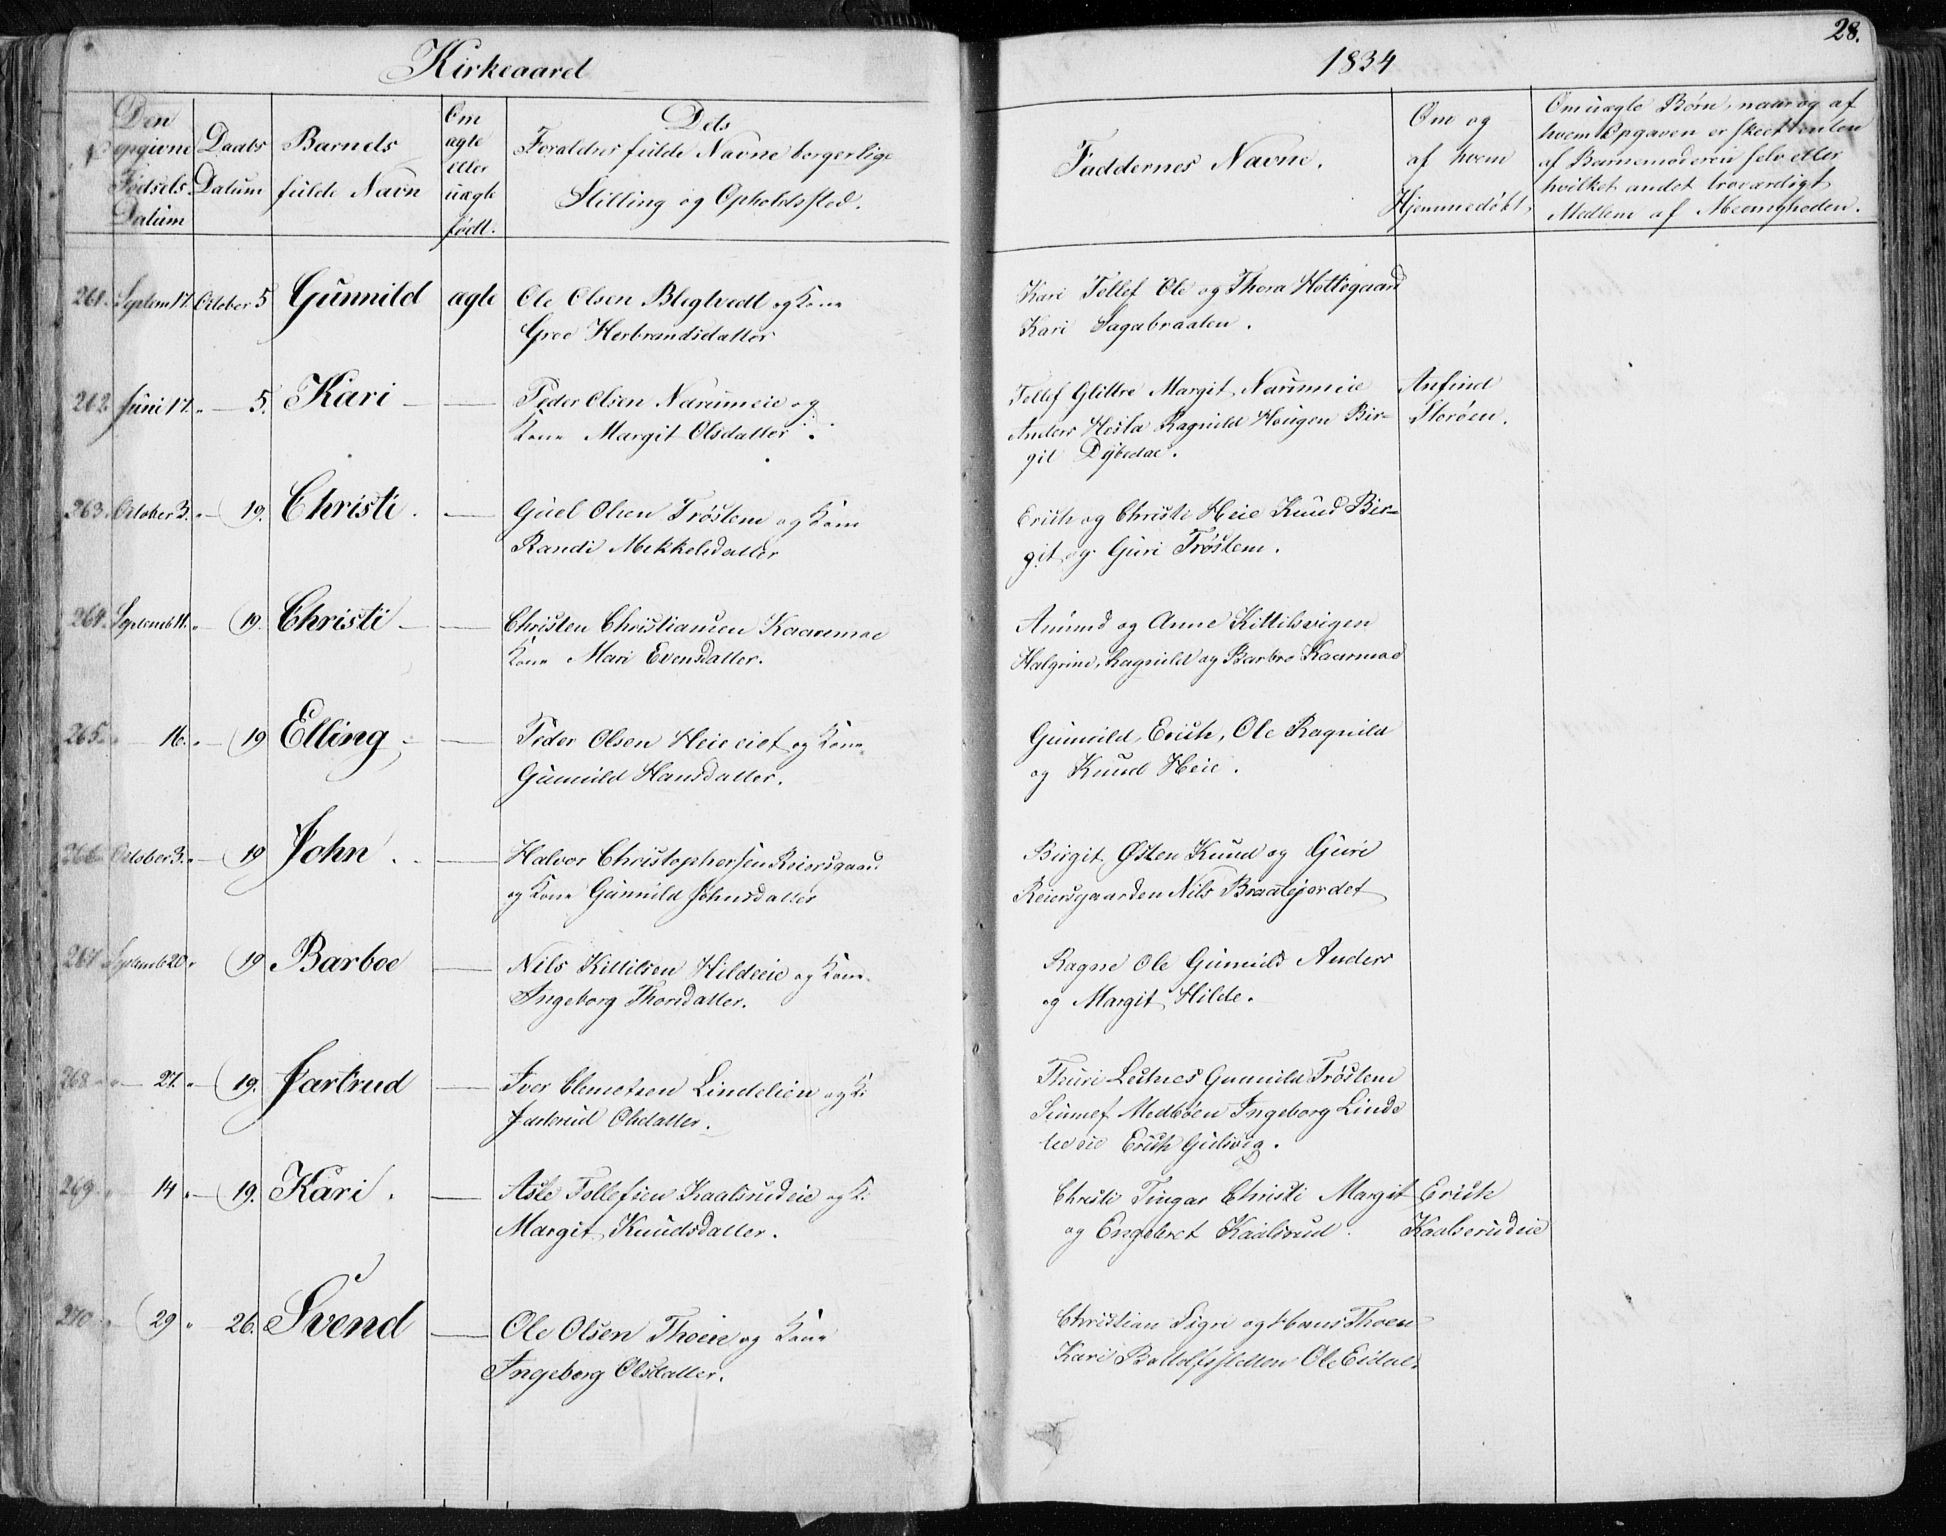 Kirkeaaret
1834
28.
Den opgivne Fødsels Datum
Daabs Datum
Barnets fulde Navn
Om ægte eller uægte født.
Dets Forældres fulde Navne borgerlige Stilling og Opholdssted.
Faddernes Navne.
Om og af hvem Hjemmedøbt
Om uægte Børn, naar og af
hvem Opgaven er skeet enten
af Barnemoderen selv eller
hvilket andet troværdigt
Medlem af Meenigheden.
261. Septem 17. October 5 Gunnild ægte Ole Olsen Blegtvedt og Kone
Groe Herbrandsdatter
Kari Tollef Ole og Thora Hottegaard
Kari Sagabraaten.
262 Juni 17. " — 5. Kari — Peder Olsen Narumeie og
Kone Margit Olsdatter
Tollef Glittre Margit Narumeie
Anders Hesla Ragnild Hougen Bir=
git Dybedal.
Anfind
Storøen.
263. October 3. " — 19. Christi — Guel Olsen Trøstem og Kone
Randi Mekkelsdatter
Erich og Christi Heie Knud Bir=
git og Guri Trøstem.
264. Septemb 11. " 19. Christi — Christen Christiansen Kaaremoe
Kone Mari Evensdatter.
Amund og Anne Kittilsvigen
Halgrim, Ragnild og Barbro Kaaremoe
265. " 16. " — 19 Elling — Peder Olsen Heieeiet og Kone
Gunnild Hansdatter.
Gunnild, Erich, Ole Ragnild
og Knud Heie.
266 October 3. " — 19 John. — Halvor Christophersen Reiersgaard
og Kone Gunnild Johnsdatter
Birgit Østen Knud og Guri
Reiersgaarden Nils Braatejordet
267 Septemb 20. " 19 Barboe — Nils Kittilsen Hildeeie og Kone
Ingeborg Thorsdatter.
Ragne Ole Gunnild Anders
og Margit Hilde.
268 " — 27. " — 19. Jartrud — Iver Clemetsen Lindelien og K:
Jartrud Olsdatter.
Thuri Lestnes Gunnild Trøstem
Medbøen Ingeborg Linde
lieeie Erich Gulsvig.
269 " 14 " — 19. Kari. — Asle Tollefsen Kaalsrudeie og K:
Margit Knudsdatter.
Christi Tingar Christi Margit
og Engebret Kaalsrud.
Erich
Kaalserudeie
270 " — 29 " 26. Svend — Ole Olsen Thoeie og Kone
Ingeborg Olsdatter.
Christian Sigri og Hans Thoen
Kari Bottolfsstetten Ole Eidal.